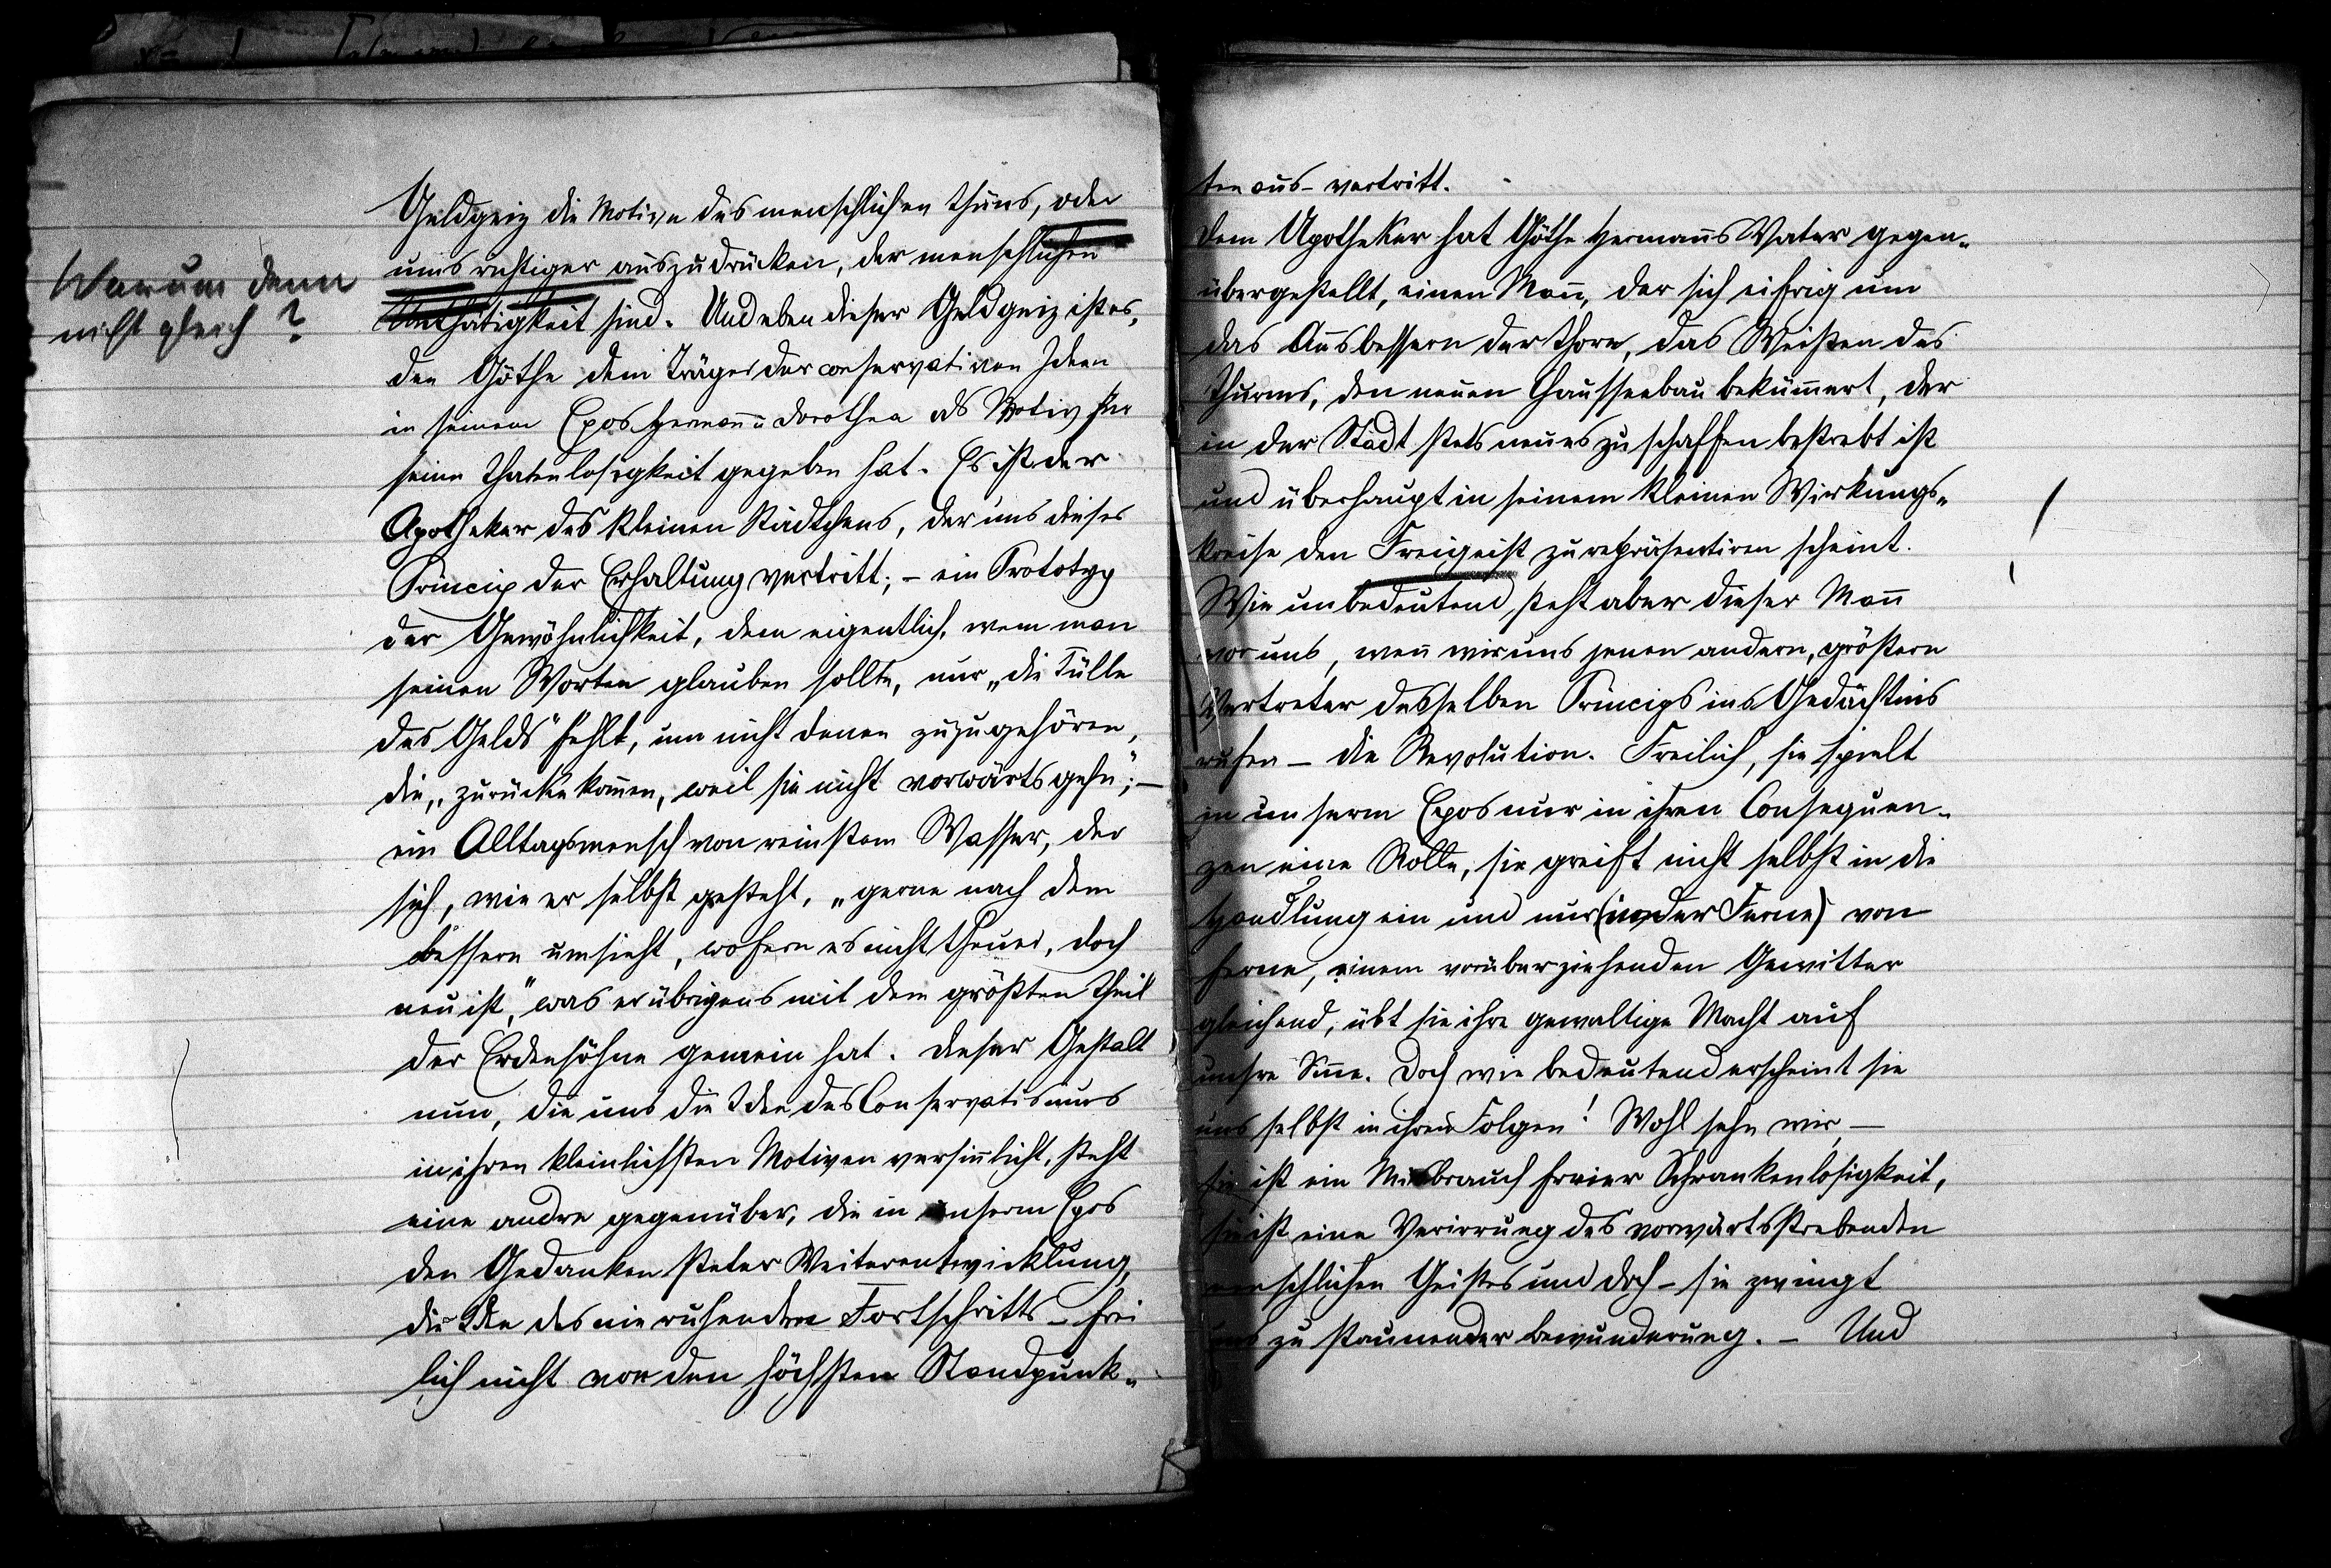 Warum denn
nicht gleich?
Geldgeiz die Motive des menschlichen Thuns, oder
ums richtiger auszudrücken, der menschlichen
Unthätigkeit sind. Und eben dieser Geldgeiz ist es,
den Göthe dem Träger der conservativen Ideen
in seinem Epos Hermann u Dorothea als Motiv für
seine Thatenlosigkeit gegeben hat. Es ist der
Apotheker des kleinen Städtchens, der uns dieses
Princip der Erhaltung vertritt; – ein Prototyp
der Gewöhnlichkeit, dem eigentlich, wenn man
seinen Worten glauben sollte, nur „die Fülle
des Gelds" fehlt, um nicht denen zuzugehören,
die „zurücke kom̄en, weil sie nicht vorwärts gehn"; –
ein Alltagsmensch von reinstem Wasser, der
sich, wie er selbst gesteht, „gerne nach dem
bessern umsieht, wofern es nicht theuer, doch
neu ist," was er übrigens mit dem größten Theil
der Erdensöhne gemein hat. Dieser Gestalt
nun, die uns die Idee des Conservatismus
in ihren kleinlichsten Motiven versin̄licht, steht
eine andre gegenüber, die in unserm Epos
den Gedanken steter Weiterentwicklung,
die Idee des nie ruhenden Fortschritts – frei
lich nicht von den höchsten Standpunk-
ten aus – vertritt.
Dem Apotheker hat Göthe Herman̄s Vater gegen-
übergestellt, einen Man̄, der sich eifrig um
das Ausbessern der Thore, das Weißen des
Thurms, den neuen Chausseebau beküm̄ert, der
in der Stadt stets neues zu schaffen bestrebt ist
und überhaupt in seinem kleinen Wirkungs-
kreise den Freigeist zu repräsentiren scheint.
Wie unbedeutend steht aber dieser Man̄
vor uns, wen̄ wir uns jenen andern, größern
Vertreter desselben Princips ins Gedächtnis
rufen – die Revolution. Freilich, sie spielt
in unserm Epos nur in ihren Consequen-
zen eine Rolle, sie greift nicht selbst in die
Handlung ein und nur (in der Ferne) von
ferne, einem vorüberziehenden Gewitter
gleichend, übt sie ihre gewaltige Macht auf
unsre Sin̄e. Doch wie bedeutend erscheint sie
uns selbst in ihren Folgen! Wohl sehn wir, –
sie ist ein Misbrauch freier Schrankenlosigkeit,
sie ist eine Verirrung des vorwärtsstrebenden
menschlichen Geistes und doch – sie zwingt
uns zu staunender Bewunderung. – Und